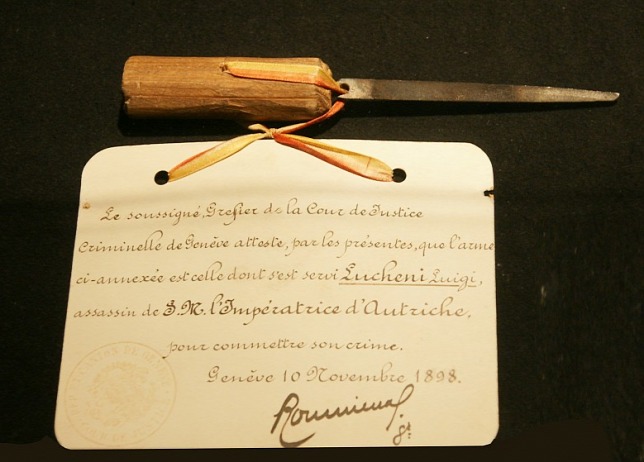 Le soussigné, Greffier de la Cour de Justice
Criminelle de Genève atteste, par les présentes, que l'arme
ci-annexée est celle dont s'est servi Lucheni Luigi,
assassin de S.M. l'Impératrice d'Autriche,
pour commettre son crime.
Genève 10 Novembre 1898.